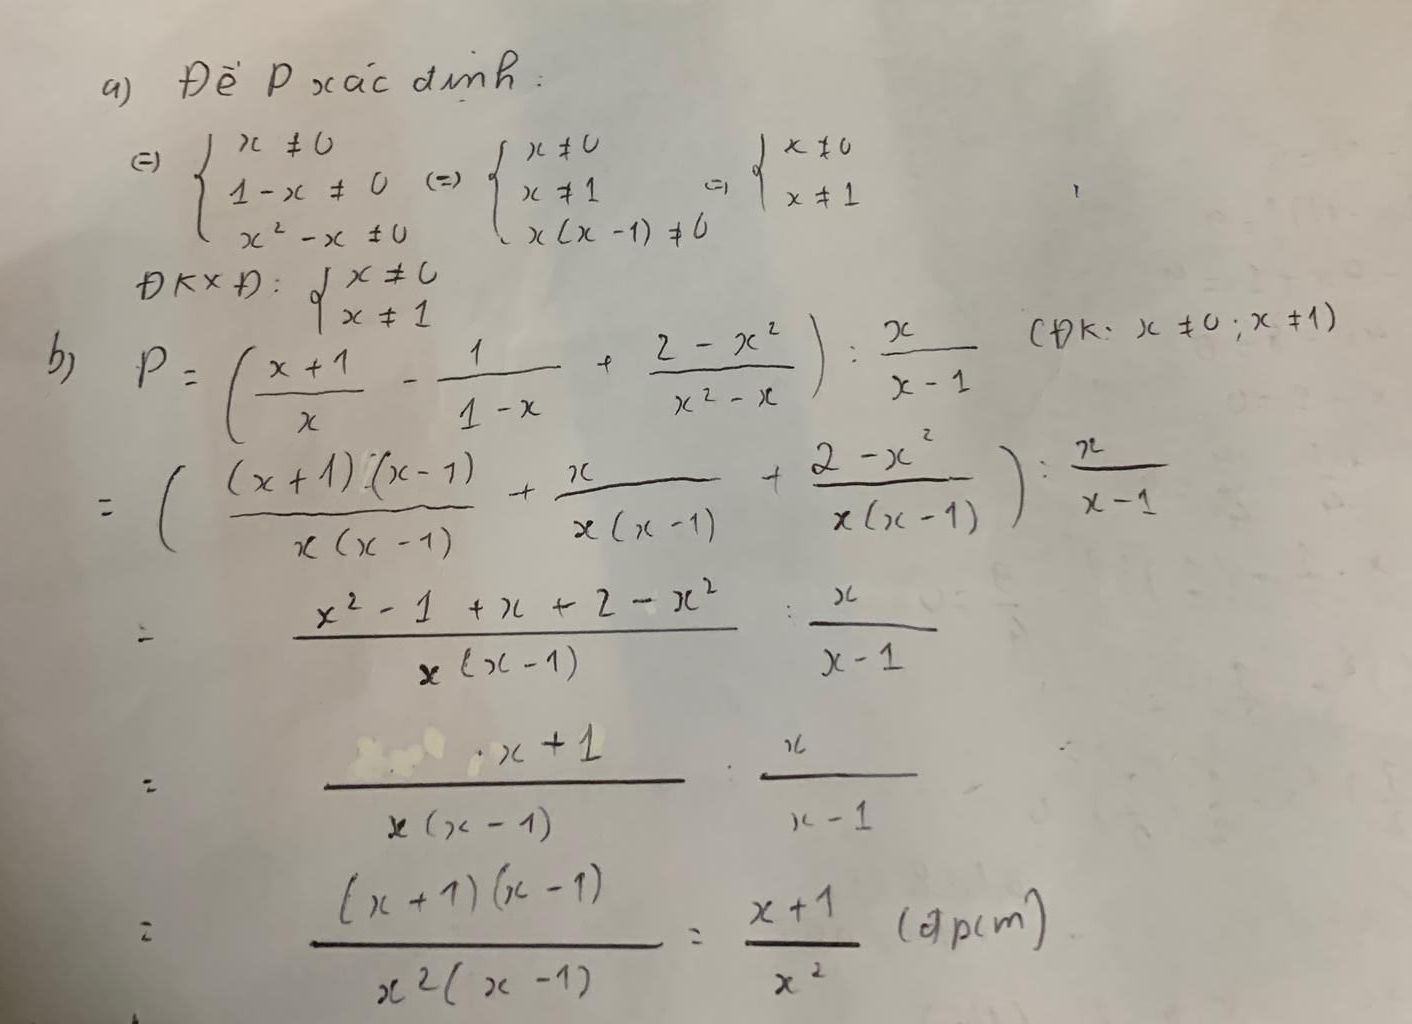 a) Để P xác định:
(=) { x ≠ 0 ; 1 - x ≠ 0 ; x² - x ≠ 0 (=) { x ≠ 0 ; x ≠ 1 ; x(x - 1) ≠ 0 (=) { x ≠ 0 ; x ≠ 1
ĐKXĐ: { x ≠ 0 ; x ≠ 1
b) P = ( (x + 1)/x - 1/(1 - x) + (2 - x²)/(x² - x) ) : x/(x - 1) (ĐK: x ≠ 0 ; x ≠ 1)
= ( (x + 1).(x - 1)/(x(x - 1)) + x/(x(x - 1)) + (2 - x²)/(x(x - 1)) ) : x/(x - 1)
= (x² - 1 + x + 2 - x²)/(x(x - 1)) : x/(x - 1)
= (x + 1)/(x(x - 1)) : x/(x - 1)
= (x + 1)(x - 1)/(x²(x - 1)) = (x + 1)/x² (đpcm)